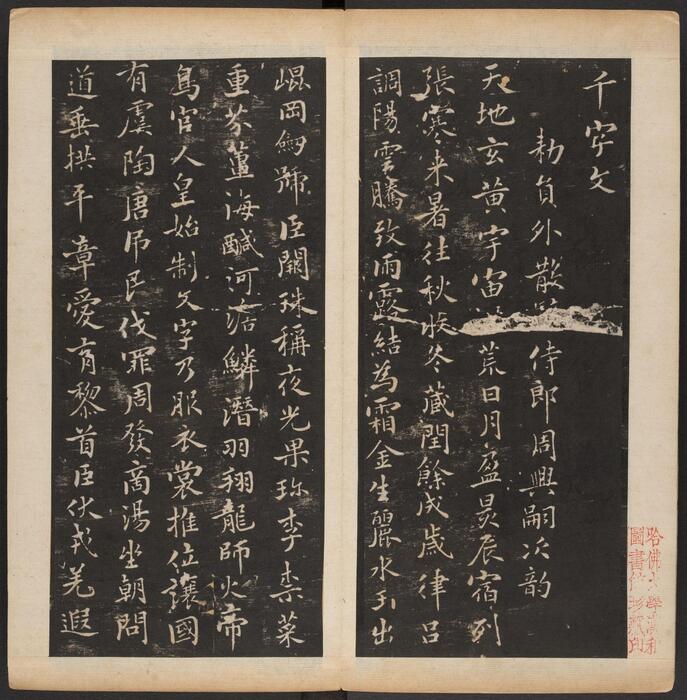 千字文
勅員外散騎侍郎周興嗣次韵
天地玄黃宇宙洪荒日月盈昃辰宿列
張寒来暑往秋收冬藏閏餘成歲律呂
調陽雲騰致雨露結為霜金生麗水玉出
崐岡劒號臣闕珠稱夜光果珎李柰菜
重芥薑海醎河淡鱗潛羽翔龍師火帝
鳥官人皇始制文字乃服衣裳推位讓國
有虞陶唐吊民伐罪周發商湯坐朝問
道垂拱平章愛育黎首臣伏戎羌遐
哈佛大學漢和
圖書館珍藏印